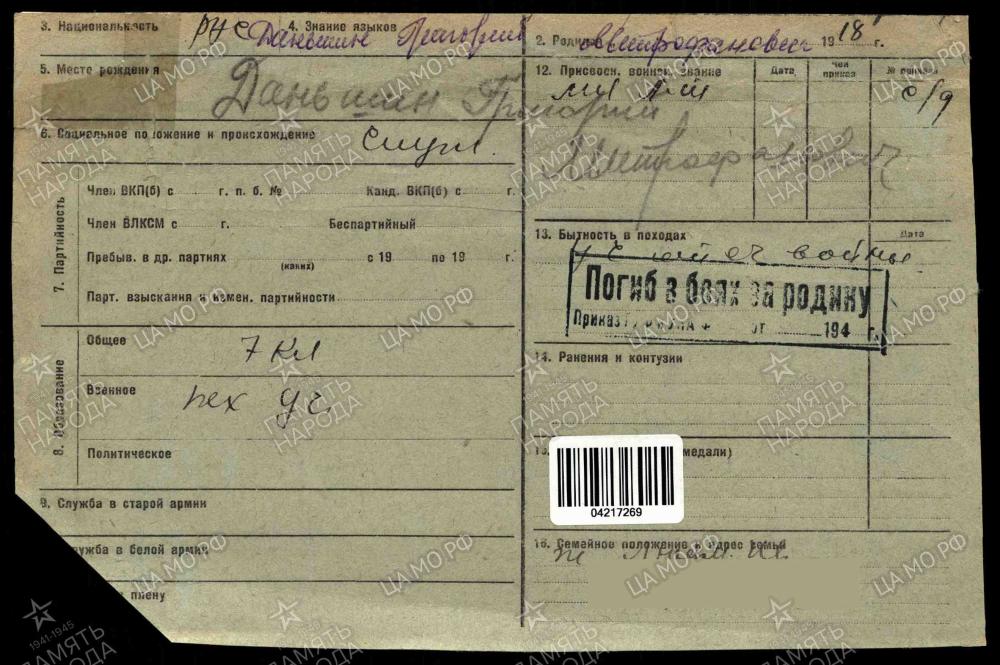 3. Национальность РУС 4. Знание языков
Даньшин Григорий Митрофанович
2. Родился 1918 г.
5. Место рождения
Даньшин Григорий
Митрофанович
12. Присвоен. военн. звание Дата Чей приказ № приказа
мл л-т с/д
6. Социальное положение и происхождение служ.
7. Партийность
Член ВКП(б) с г. п. б. № Канд. ВКП(б) с г.
Член ВЛКСМ с г. Беспартийный
Пребыв. в др. партиях (каких) с 19 по 19 г.
Парт. взыскания и измен. партийности
8. Образование
Общее 7 кл
Военное пех уч.
Политическое
9. Служба в старой армии
служба в белой армии
плену
13. Бытность в походах Дата
войны
Погиб в боях за родину
Приказ ГУФ от 194 г.
14. Ранения и контузии
15. медали)
04217269
16. Семейное положение и адрес семьи
ПАМЯТЬ НАРОДА
1941-1945
ЦА МО РФ